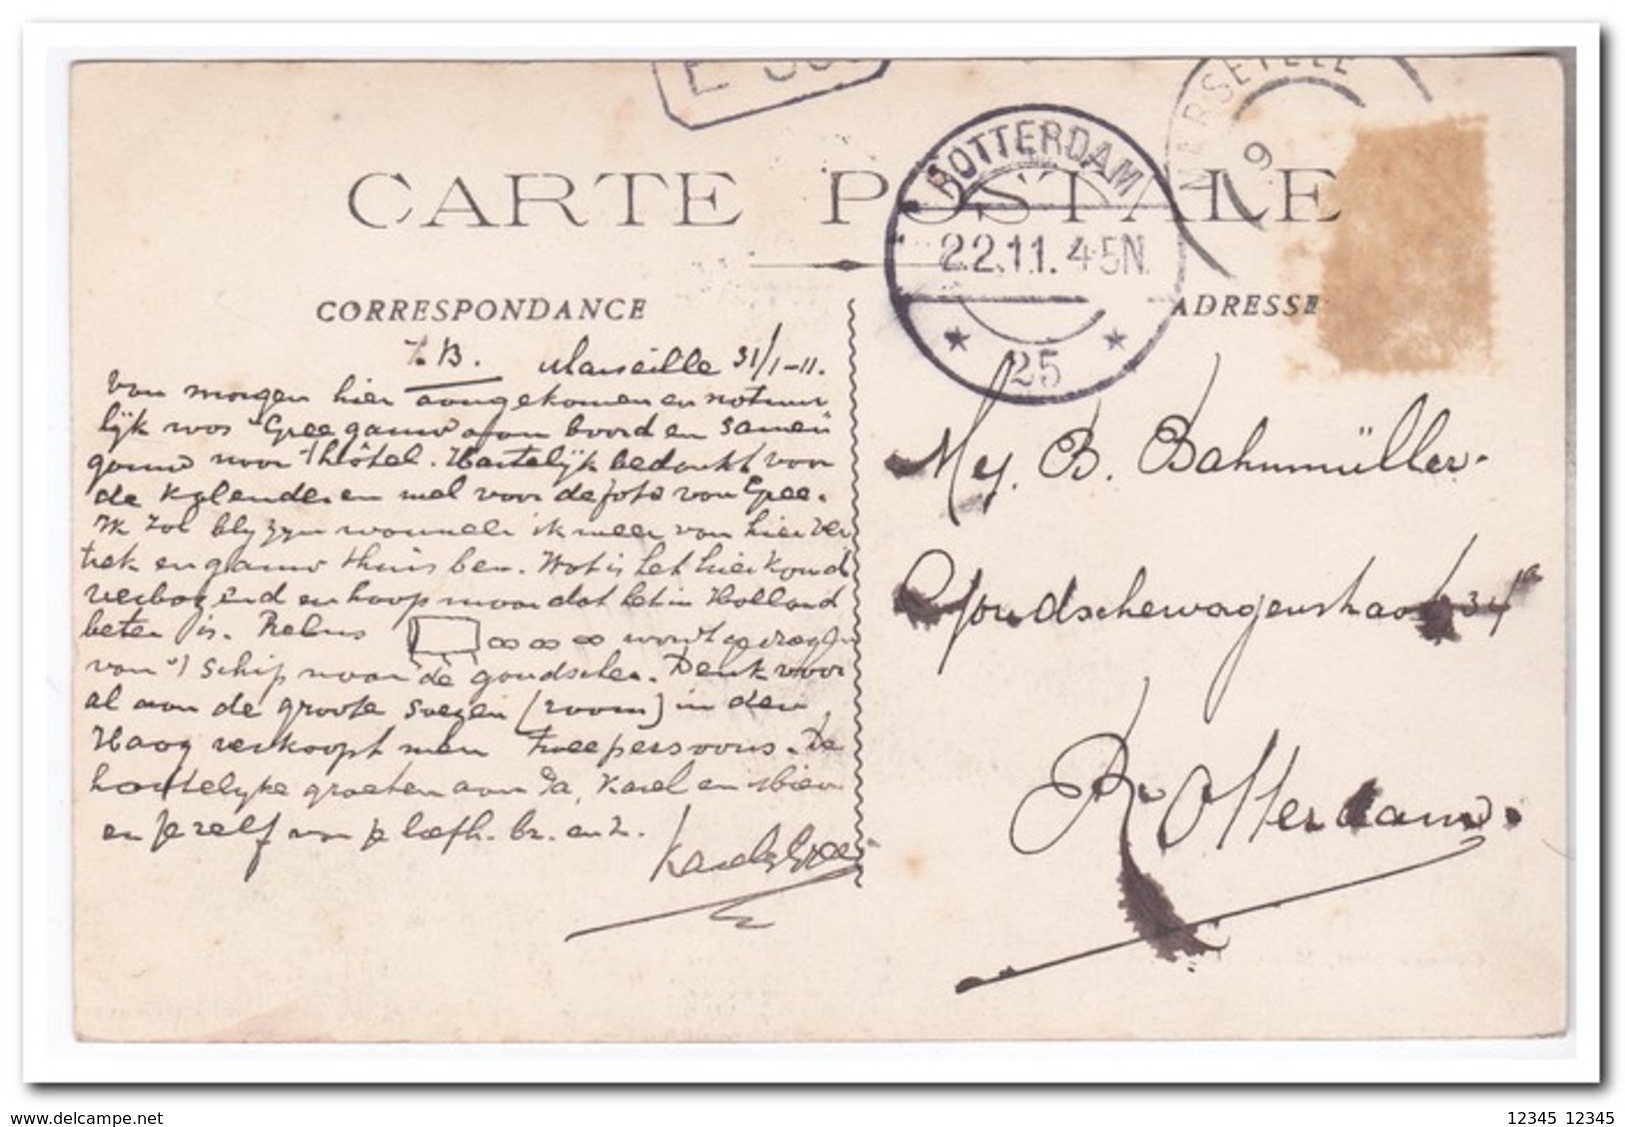 CARTE POSTALE
ROTTERDAM
22.11. 4-5N
25
MARSEILLE
9
CORRESPONDANCE
ADRESSE
B. Marseille 31/1-11.
Van morgen hier aangekomen en natuur
lijk was Gree gauw aan boord en samen
gauw naar 't hôtel. Hartelijk bedankt voor
de kalender en mal voor de foto van Gree.
Ik zal bly zyn wanneer ik weer van hier ver
trek en gauw thuis ben. Wat is het hier koud
verbazend en hoop maar dat het in Holland
beter is. wordt gedragen
van 't schip naar de goudsche. Denk voor
al aan de groote (room) in den
Haag verkoopt men twee persoons. De
hartelyke groeten aan Pa, Karel en Wien
en je zelf van je liefh. br. en z.
Karel & Gree
Mej. B. Bahnmüller.
Goudschewagenstraat 34a
Rotterdam.
delcampe.net
12345 12345